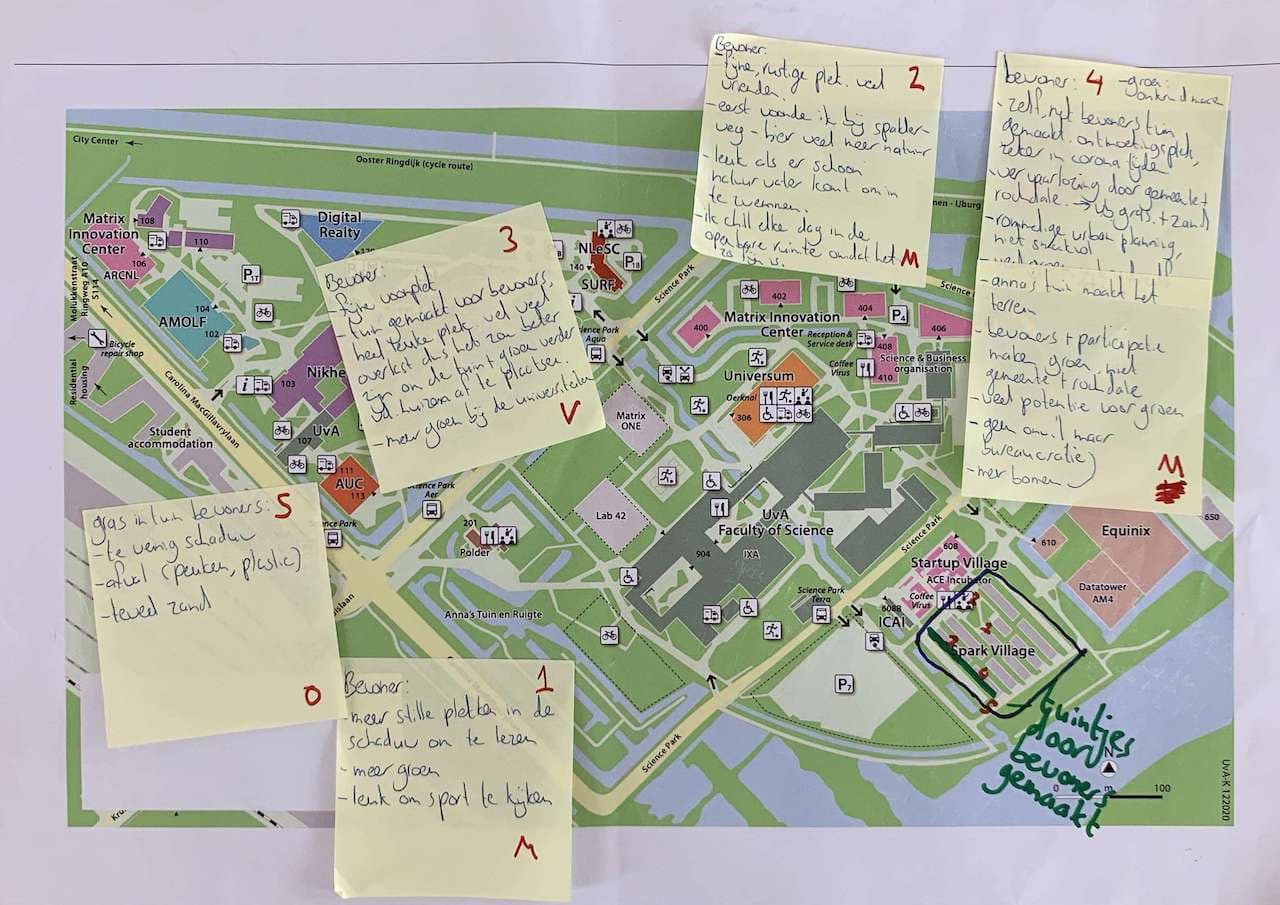 Bewoner: 2
- fijne, rustige plek. veel
vrienden.
- eerst woonde ik bij spakler-
weg - hier veel meer natuur
- leuk als er schoon
natuur water komt om in
te zwemmen.
- ik chill elke dag in de
openbare ruimte omdat het
zo fijn is.
M
bewoner: 4 - groen:
- zelf, met bewoners tuin
gemaakt. ontmoetingsplek,
zeker in corona tijde
verwaarlozing door gemeente +
rochdale. → vb gras + zand
- rommelige urban planning,
niet smaakvol
- anna's tuin maakt het
terrein
- bewoners + participatie
maken groen, niet
gemeente + rochdale
- veel potentie voor groen
- geen onwil maar
bureaucratie)
- meer bomen
M
City Center
Ooster Ringdijk (cycle route)
men - IJburg
Matrix
Innovation
Center
ARCNL
108
110
106
Digital
Realty
P17
AMOLF
104
102
Molukkenstraat
Ringweg A10
S114
Bicycle
repair shop
Residential
housing
Carolina MacGillavrylaan
Student
accommodation
Nikhe
103
UvA
107
111
AUC
113
3
Bewoner:
fijne woonplek
tuin gemaakt voor bewoners,
heel leuke plek. wel veel
overlast dus het zou beter
zijn om de
vd huizen af te plaatsen.
- meer groen bij de universiteiten
V
NLeSC
140
SURF
P18
Science Park
cience Park
Aqua
400
402
404
406
P4
Matrix Innovation
Center
Reception &
Service desk
408
Coffee
Virus
410
Science & Business
organisation
Universum
Oerknal
306
Matrix
ONE
Lab 42
UvA
Faculty of Science
904
IXA
Science Park
Science Park
Aer
201
Polder
Anna's Tuin en Ruigte
Science Park
Terra
608
Startup Village
ACE Incubator
Coffee
Virus
608B
ICAI
610
Equinix
650
Datatower
AM4
Spark Village
P7
Science Park
gras in tuin bewoners: 5
- te weinig schaduw
- afval (peuken, plastic)
- teveel zand
O
Bewoner: 1
- meer stille plekken in de
schaduw om te lezen
- meer groen
- leuk om sport te kijken
M
tuintjes
door
bewoners
gemaakt
N
0 m 100
UvA-K 122020